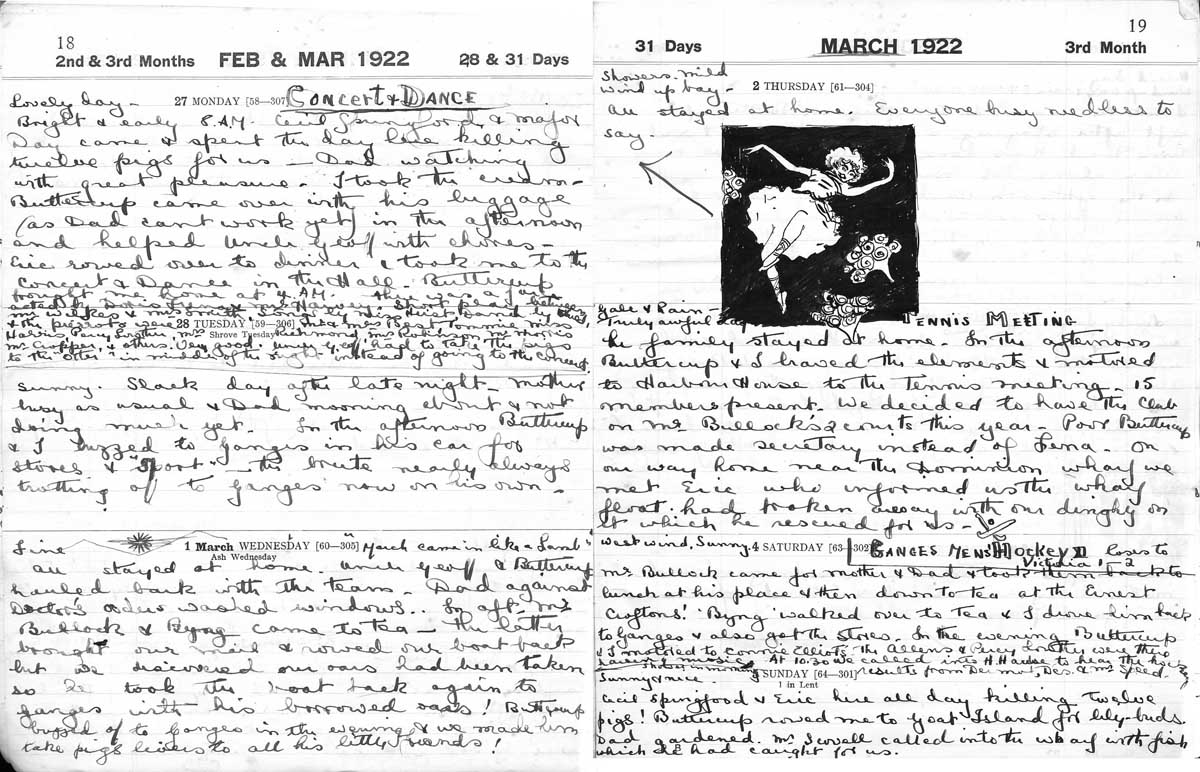 18
2nd & 3rd Months FEB & MAR 1922 28 & 31 Days
Lovely day - 27 MONDAY [58—307] CONCERT & DANCE
Bright & early 8 A.M. Cecil Springford & Major
Day came & spent the day here killing
twelve pigs for us — Dad watching
with great pleasure. I took the cream -
Buttercup came over with his luggage
(as Dad can't work yet) in the afternoon
and helped Uncle Geoff with chores -
Eric rowed over to dinner & took me to the
Concert & Dance in the Hall. Buttercup
brought home at 4 AM.
28 TUESDAY [59—306]
Shrove Tuesday
& others. Very good. Uncle Geoff had to take the pigs
to the Otter in middle of the night instead of going to the concert.
Sunny. Slack day after late night - Mother
busy as usual & Dad mooning about & not
doing much yet. In the afternoon Buttercup
& I buzzed to Ganges in his car for
stores & "Sport" — the brute nearly always
trotting off to Ganges now on his own -
Fine 1 March WEDNESDAY [60—305] "March came in like a Lamb"
Ash Wednesday
All stayed at home. Uncle Geoff & Buttercup
hauled bark with the team - Dad against
Doctor's orders washed windows.. In aft. Mr
Bullock & Byng came to tea - The latter
brought our mail & rowed our boat back
but we discovered our oars had been taken
so he took the boat back again to
Ganges with his borrowed oars! Buttercup
buzzed off to Ganges in the evening & we made him
take pigs livers to all his little friends!
19
31 Days MARCH 1922 3rd Month
Showers. Mild
wind up bay - 2 THURSDAY [61—304]
All stayed at home. Everyone busy needless to
say.
Gale & Rain -
Truly awful day TENNIS MEETING
The family stayed at home. In the afternoon
Buttercup & I braved the elements & motored
to Harbour House to the Tennis meeting - 15
members present. We decided to have the Club
on Mr Bullock's 2 courts this year - Poor Buttercup
was made secretary instead of Fena. On
our way home near the Dominion wharf we
met Eric who informed us the wharf
float had broken away with our dinghy on
it which he rescued for us -
West wind. Sunny. 4 SATURDAY [63—302] GANGES MEN'S HOCKEY II loses to
Victoria 1-2
Mr Bullock came for Mother & Dad & took them back to
lunch at his place & then down to tea at the Ernest
Croftons! Byng walked over to tea & I drove him back
to Ganges & also got the stores. In the evening Buttercup
& I motored to Connie Elliots. The Allens & Percy Lowther were there
At 10.30 we called into H. House to hear the hockey
Sunny & nice. 5 SUNDAY [64—301] results from Dermot, Des. & Mr Speed.
1 in Lent
Cecil Springford & Eric here all day killing twelve
pigs! Buttercup rowed me to Goat Island for lily-buds.
Dad gardened. Mr Lowall called into the wharf with fish
which he had caught for us.